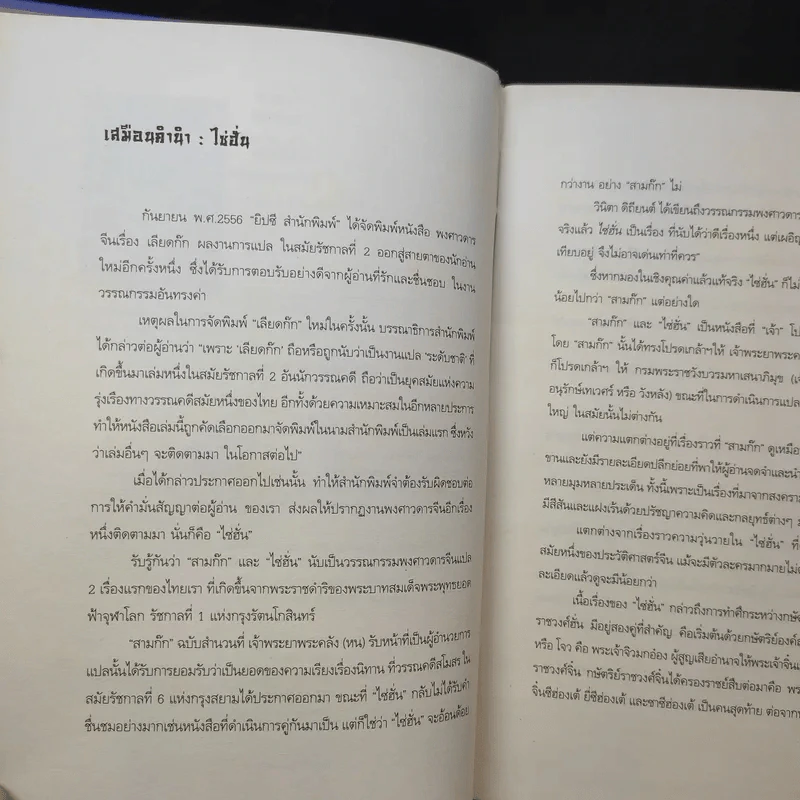 เสมือนคำนำ : ไซ่ฮั่น
กันยายน พ.ศ.2556 "ยิปซี สำนักพิมพ์" ได้จัดพิมพ์หนังสือ พงศาวดาร
จีนเรื่อง เลียดก๊ก ผลงานการแปล ในสมัยรัชกาลที่ 2 ออกสู่สายตาของนักอ่าน
ใหม่อีกครั้งหนึ่ง ซึ่งได้รับการตอบรับอย่างดีจากผู้อ่านที่รักและชื่นชอบ ในงาน
วรรณกรรมอันทรงค่า
เหตุผลในการจัดพิมพ์ "เลียดก๊ก" ใหม่ในครั้งนั้น บรรณาธิการสำนักพิมพ์
ได้กล่าวต่อผู้อ่านว่า "เพราะ 'เลียดก๊ก' ถือหรือถูกนับว่าเป็นงานแปล 'ระดับชาติ' ที่
เกิดขึ้นมาเล่มหนึ่งในสมัยรัชกาลที่ 2 อันนักวรรณคดี ถือว่าเป็นยุคสมัยแห่งความ
รุ่งเรืองทางวรรณคดีสมัยหนึ่งของไทย อีกทั้งด้วยความเหมาะสมในอีกหลายประการ
ทำให้หนังสือเล่มนี้ถูกคัดเลือกออกมาจัดพิมพ์ในนามสำนักพิมพ์เป็นเล่มแรก ซึ่งหวัง
ว่าเล่มอื่นๆ จะติดตามมา ในโอกาสต่อไป"
เมื่อได้กล่าวประกาศออกไปเช่นนั้น ทำให้สำนักพิมพ์จำต้องรับผิดชอบต่อ
การให้คำมั่นสัญญาต่อผู้อ่าน ของเรา ส่งผลให้ปรากฏงานพงศาวดารจีนอีกเรื่อง
หนึ่งติดตามมา นั่นก็คือ "ไซ่ฮั่น"
รับรู้กันว่า "สามก๊ก" และ "ไซ่ฮั่น" นับเป็นวรรณกรรมพงศาวดารจีนแปล
2 เรื่องแรกของไทยเรา ที่เกิดขึ้นจากพระราชดำริของพระบาทสมเด็จพระพุทธยอด
ฟ้าจุฬาโลก รัชกาลที่ 1 แห่งกรุงรัตนโกสินทร์
"สามก๊ก" ฉบับสำนวนที่ เจ้าพระยาพระคลัง (หน) รับหน้าที่เป็นผู้อำนวยการ
แปลนั้นได้รับการยอมรับว่าเป็นยอดของความเรียงเรื่องนิทาน ที่วรรณคดีสโมสร ใน
สมัยรัชกาลที่ 6 แห่งกรุงสยามได้ประกาศออกมา ขณะที่ "ไซ่ฮั่น" กลับไม่ได้รับคำ
ชื่นชมอย่างมากเช่นหนังสือที่ดำเนินการคู่กันมาเป็น แต่ก็ใช่ว่า "ไซ่ฮั่น" จะอ่อนด้อย
กว่างาน อย่าง "สามก๊ก" ไม่
วินิตา ดิถียนต์ ได้เขียนถึงวรรณกรรมพงศาวดาร
จริงแล้ว ไซ่ฮั่น เป็นเรื่อง ที่นับได้ว่าดีเรื่องหนึ่ง แต่เผอิญ
เทียบอยู่ จึงไม่อาจเด่นเท่าที่ควร"
ซึ่งหากมองในเชิงคุณค่าแล้วแท้จริง "ไซ่ฮั่น" ก็ไม่
น้อยไปกว่า "สามก๊ก" แต่อย่างใด
"สามก๊ก" และ "ไซ่ฮั่น" เป็นหนังสือที่ "เจ้า" โป
โดย "สามก๊ก" นั้นได้ทรงโปรดเกล้าฯให้ เจ้าพระยาพระค
ก็โปรดเกล้าฯ ให้ กรมพระราชวังบวรมหาเสนาภิมุข (เ
อนุรักษ์เทเวศร์ หรือ วังหลัง) ขณะที่ในการดำเนินการแปล
ใหญ่ ในสมัยนั้นไม่ต่างกัน
แต่ความแตกต่างอยู่ที่เรื่องราวที่ "สามก๊ก" ดูเหมือ
ขานและยังมีรายละเอียดปลีกย่อยที่พาให้ผู้อ่านจดจำและนำ
หลายมุมหลายประเด็น ทั้งนี้เพราะเป็นเรื่องที่มาจากสงคราม
มีสีสันและแฝงเร้นด้วยปรัชญาความคิดและกลยุทธ์ต่างๆ ม
แตกต่างจากเรื่องราวความวุ่นวายใน "ไซ่ฮั่น" ที่
สมัยหนึ่งของประวัติศาสตร์จีน แม้จะมีตัวละครมากมายไม่
ละเอียดแล้วดูจะมีน้อยกว่า
เนื้อเรื่องของ "ไซ่ฮั่น" กล่าวถึงการทำศึกระหว่างกษัต
ราชวงศ์ฮั่น มีอยู่สองคู่ที่สำคัญ คือเริ่มต้นด้วยกษัตริย์องค์
หรือ โจว คือ พระเจ้าจิวมกอ๋อง ผู้สูญเสียอำนาจให้พระเจ้าจิ๋น
ราชวงศ์จิ๋น กษัตริย์ราชวงศ์จิ๋นได้ครองราชย์สืบต่อมาคือ พร
จิ๋นซีฮ่องเต้ ยี่ซีฮ่องเต้ และซาซีฮ่องเต้ เป็นคนสุดท้าย ต่อจาก